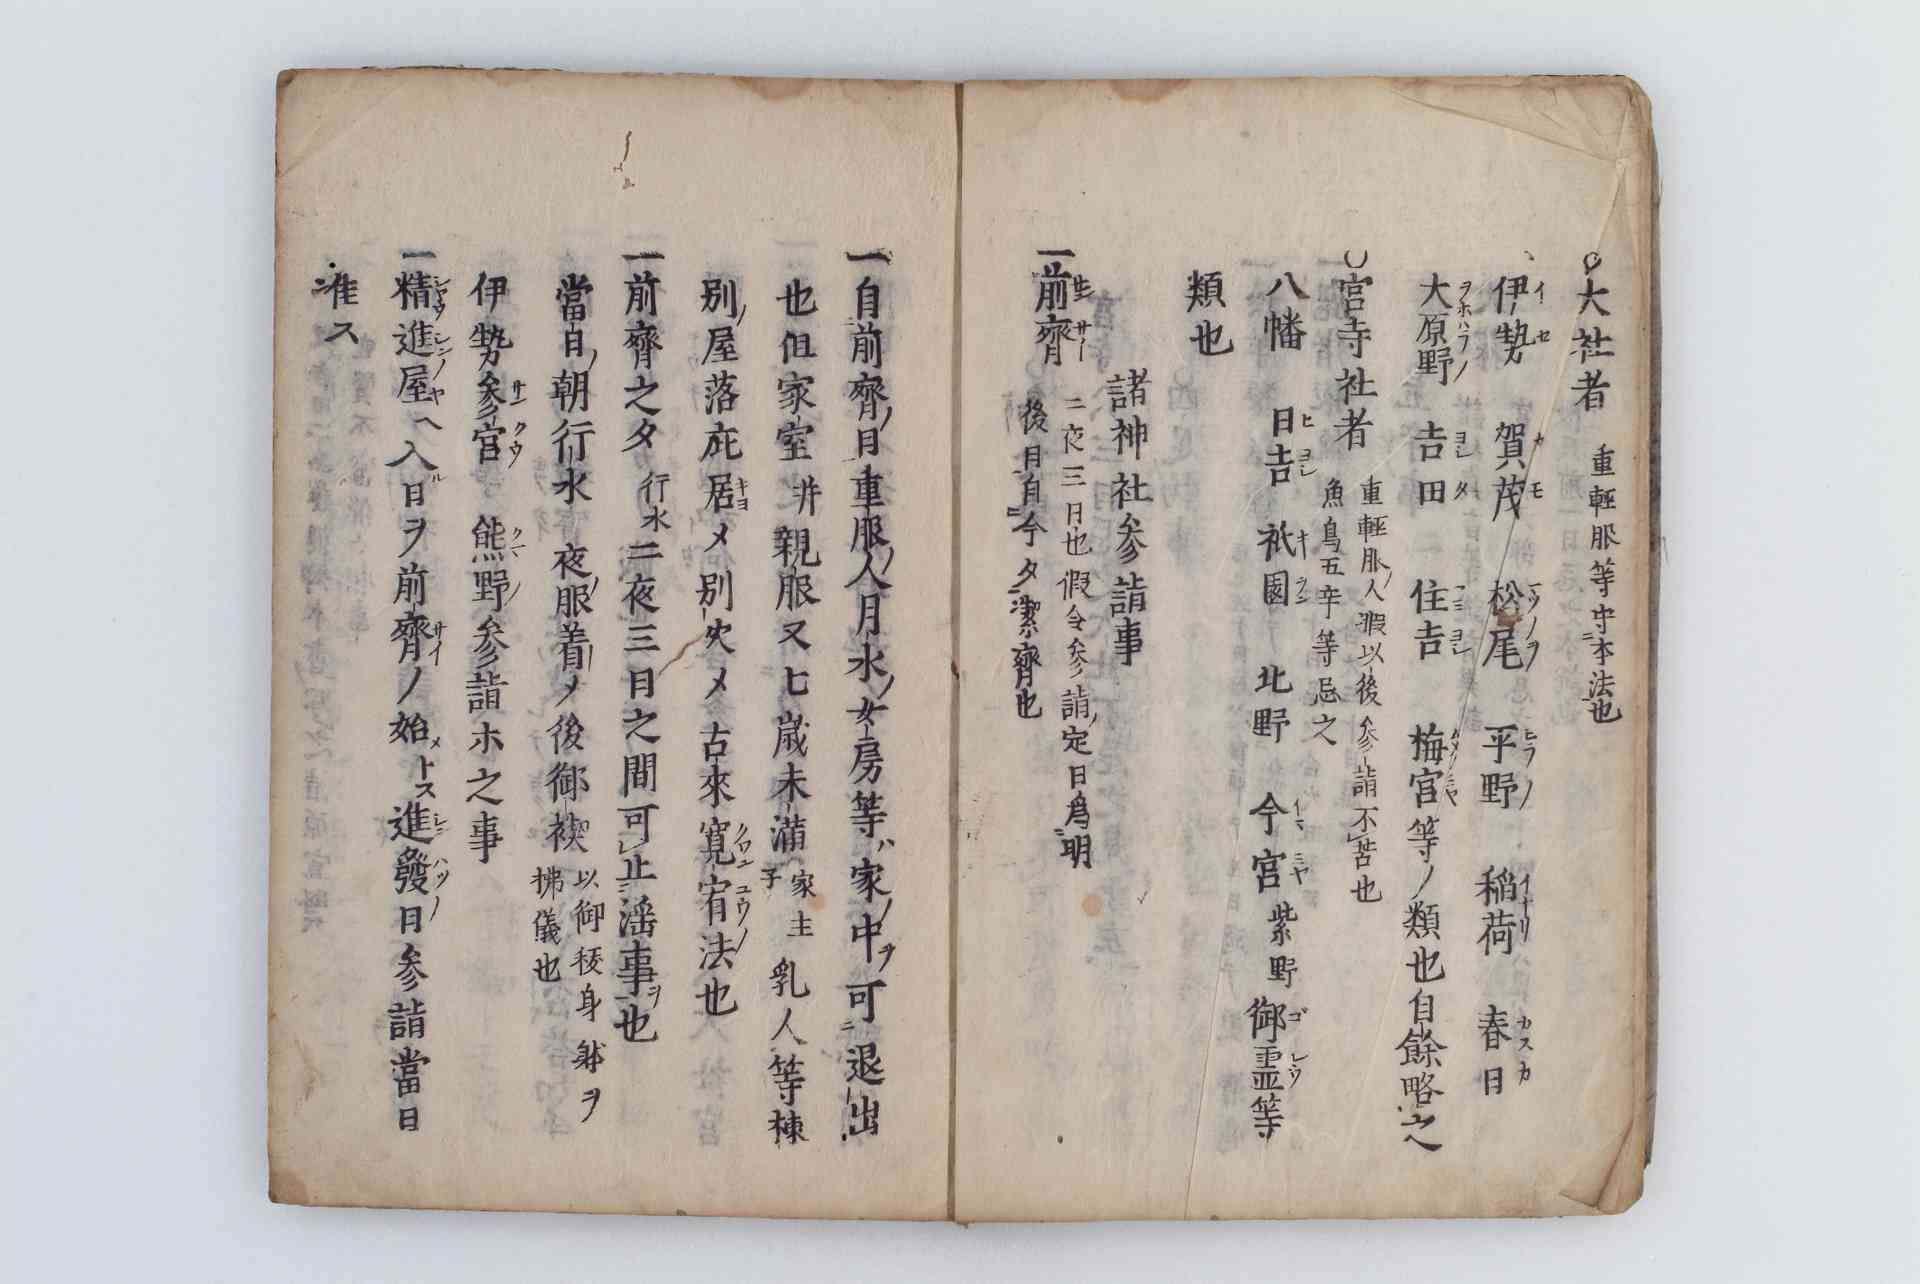 ○大社者 重輕服等守本法也
伊勢 賀茂 松尾 平野 稲荷 春日
大原野 吉田 住吉 梅宮等ノ類也自餘略之
○宮寺社者 重輕服ノ人暇以後参詣不苦也
魚鳥五辛等忌之
八幡 日吉 祇園 北野 今宮 紫野 御霊等
類也
諸神社参詣事
一前齊 二夜三日也假令参詣ノ定日爲明
後日自今夕潔齊也
一自前齊ノ日重服ノ人月水ノ女房等ハ家ノ中ヲ可退出
也但家室并親服又七歳未満 家主子 乳人等棟
別ノ屋落庇居メ別火メ古來寛宥ノ法也
一前齊之夕 行水 二夜三日之間可止淫事ヲ也
當日ノ朝行水 夜服ノ着メ後御禊 以御稜身躰ヲ
拂儀也
伊勢参宮 熊野参詣ホ之事
一精進屋ヘ入ル日ヲ前齊ノ始メトス進發ノ日参詣當日
准ス